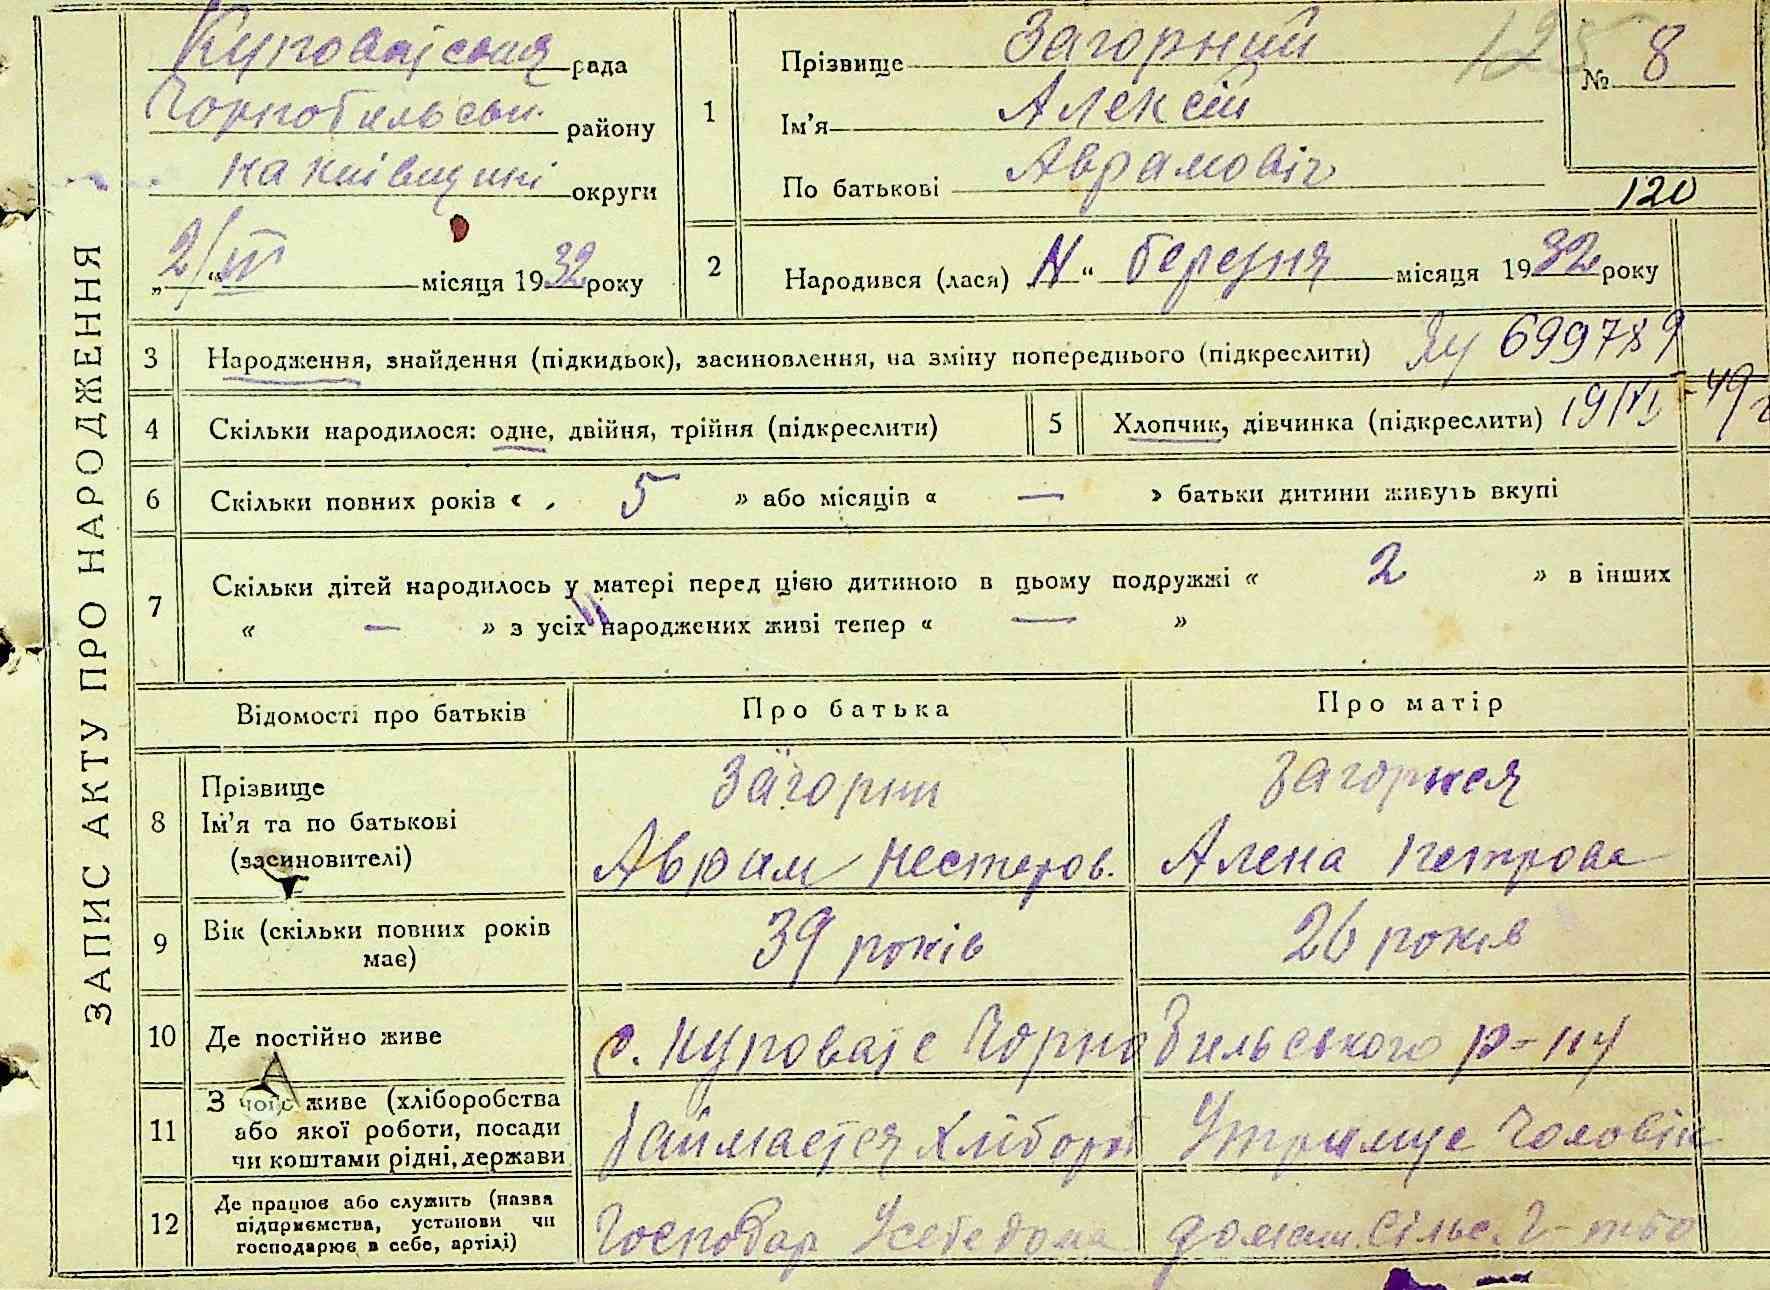 ЗАПИС АКТУ ПРО НАРОДЖЕННЯ
Куповатська рада
Чорнобильськ. району
на Київщині округи
„2/III“ місяця 1932 року
1
Прізвище Загорний
Ім'я Алексій
По батькові Аврамовіч
125
№ 8
120
2
Народився (лася) „ “ березня місяця 1932 року
3 Народження, знайдення (підкидьок), засиновлення, на зміну попереднього (підкреслити) 699789
4 Скільки народилося: одне, двійня, трійня (підкреслити)
5 Хлопчик, дівчинка (підкреслити) 19/VI-49 г
6 Скільки повних років « 5 » або місяців « — » батьки дитини живуть вкупі
7 Скільки дітей народилось у матері перед цією дитиною в цьому подружжі « 2 » в інших
« — » з усіх народжених живі тепер « — »
Відомості про батьків Про батька Про матір
8 Прізвище
Ім'я та по батькові
(засиновителі)
Загорни
Аврам Нестеров.
Загорнея
Алена Петрова
9 Вік (скільки повних років
має)
39 років
26 років
10 Де постійно живе
с. Куповате Чорнобильського р-ну
11 З чого живе (хліборобства
або якої роботи, посади
чи коштами рідні, держави
Займается хлібороб
Утримує чоловік
12 Де працює або служить (назва
підприємства, установи чи
господарює в себе, артілі)
Господар Усебе дома
домаш. сільс. г-тво